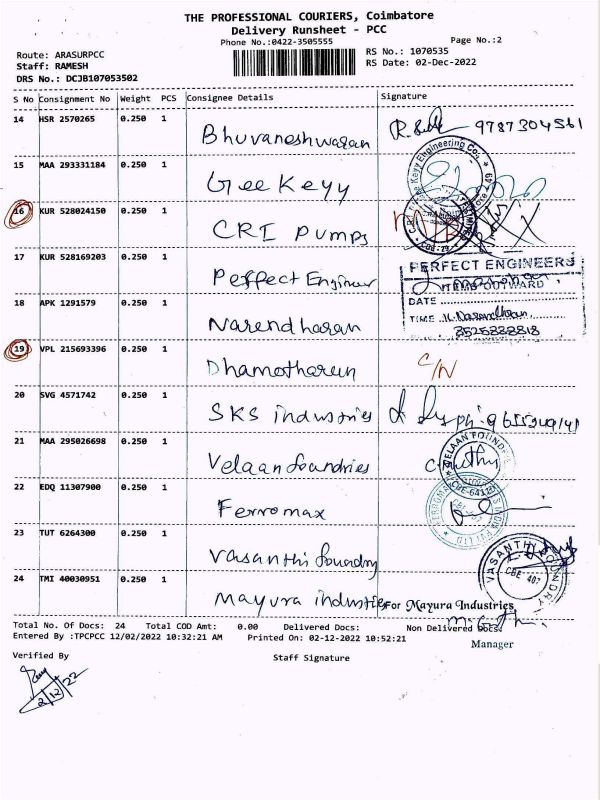 THE PROFESSIONAL COURIERS, Coimbatore
Delivery Runsheet - PCC
Phone No.:0422-3505555
Page No.:2
Route: ARASURPCC
RS No.: 1070535
Staff: RAMESH
RS Date: 02-Dec-2022
DRS No.: DCJB107053502
S No Consignment No Weight PCS Consignee Details Signature
14 HSR 2570265 0.250 1 Bhuvaneshwaran 9787304561
15 MAA 293331184 0.250 1 Gee Keyy
16 KUR 528024150 0.250 1 CRI Pumps
17 KUR 528169203 0.250 1 Perfect Engineer
PERFECT ENGINEERS
INWARD
18 APK 1291579 0.250 1 Narendharan
DATE
TIME
8525888818
19 VPL 215693396 0.250 1 Dhamotharan C/N
20 SVG 4571742 0.250 1 SKS industries
21 MAA 295026698 0.250 1 Velaan foundries
22 EDQ 11307900 0.250 1 Ferromax
23 TUT 6264300 0.250 1 Vasanthi foundry
VASANTHY FOUNDRY
CBE 407
24 TMI 40030951 0.250 1 Mayura industries
For Mayura Industries
Total No. Of Docs: 24 Total COD Amt: 0.00 Delivered Docs: Non Delivered Docs:
Entered By :TPCPCC 12/02/2022 10:32:21 AM Printed On: 02-12-2022 10:52:21
Manager
Verified By Staff Signature
2/12/22